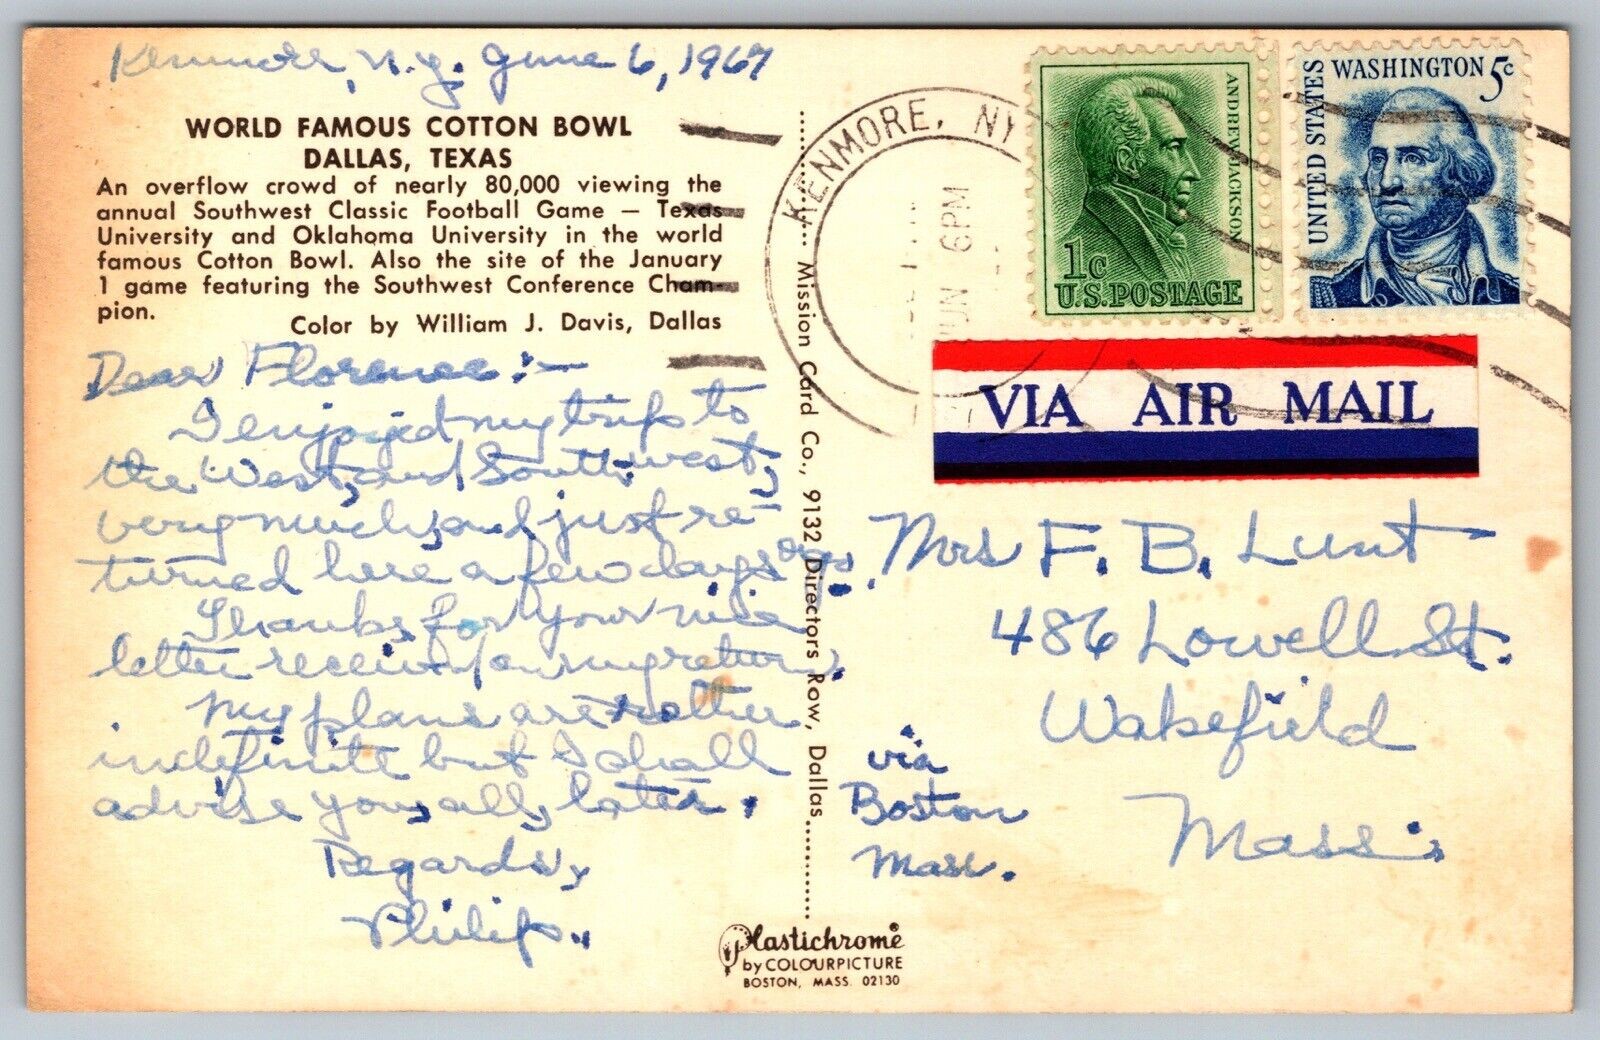 Kenmore, N.Y. June 6, 1967
WORLD FAMOUS COTTON BOWL
DALLAS, TEXAS
An overflow crowd of nearly 80,000 viewing the
annual Southwest Classic Football Game — Texas
University and Oklahoma University in the world
famous Cotton Bowl. Also the site of the January
1 game featuring the Southwest Conference Cham-
pion.
Color by William J. Davis, Dallas
Dear Florence:—
I enjoyed my trip to
the West, and Southwest,
very much, and just re-
turned here a few days ago.
Thanks for your nice
letter received on my return.
My plans are rather
indefinite but I shall
advise you all, later.
Regards,
Philip.
Mission Card Co., 9132 Directors Row, Dallas
Plastichrome®
by COLOURPICTURE
BOSTON, MASS. 02130
KENMORE, NY
JUN 6PM
ANDREW JACKSON
1c
U.S. POSTAGE
WASHINGTON 5c
UNITED STATES
VIA AIR MAIL
Mrs F. B. Lunt
486 Lowell St.
Wakefield
Mass.
via
Boston
Mass.